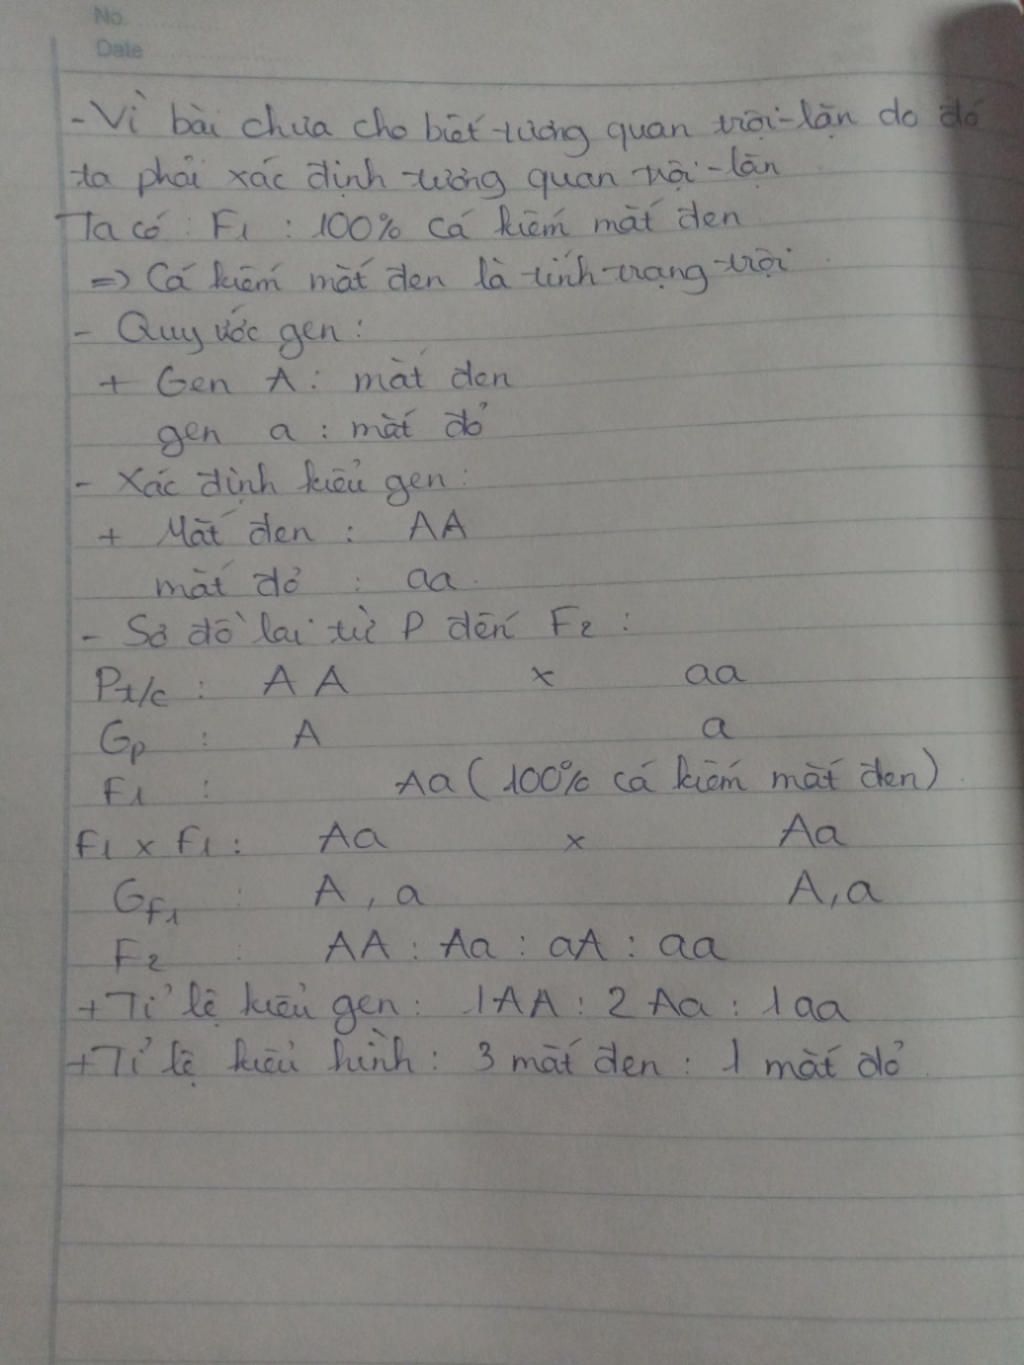 No.
Date
- Vì bài chưa cho biết tương quan trội-lặn do đó
ta phải xác định tương quan trội-lặn
Ta có: F1 : 100% cá kiếm mắt đen
=> Cá kiếm mắt đen là tính trạng trội.
- Quy ước gen:
+ Gen A: mắt đen
gen a: mắt đỏ
- Xác định kiểu gen:
+ Mắt đen : AA
mắt đỏ : aa.
- Sơ đồ lai từ P đến F2:
Pt/c : AA x aa
Gp : A a
F1 : Aa (100% cá kiếm mắt đen).
F1 x F1: Aa x Aa
GF1 : A, a A, a
F2 : AA : Aa : aA : aa
+ Tỉ lệ kiểu gen: 1AA : 2Aa : 1aa
+ Tỉ lệ kiểu hình: 3 mắt đen : 1 mắt đỏ.